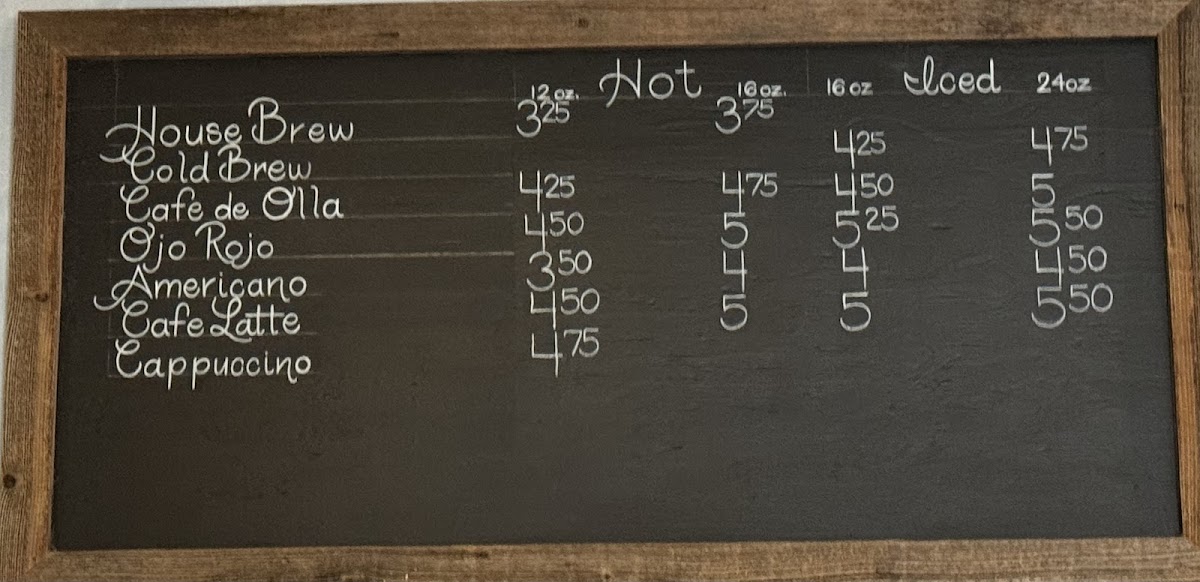 Hot Iced
12oz. 16oz. 16oz 24oz
House Brew 3 25 3 75
Cold Brew 4 25 4 75
Cafe de Olla 4 25 4 75 4 50 5
Ojo Rojo 4 50 5 5 25 5 50
Americano 3 50 4 4 4 50
Cafe Latte 4 50 5 5 5 50
Cappuccino 4 75